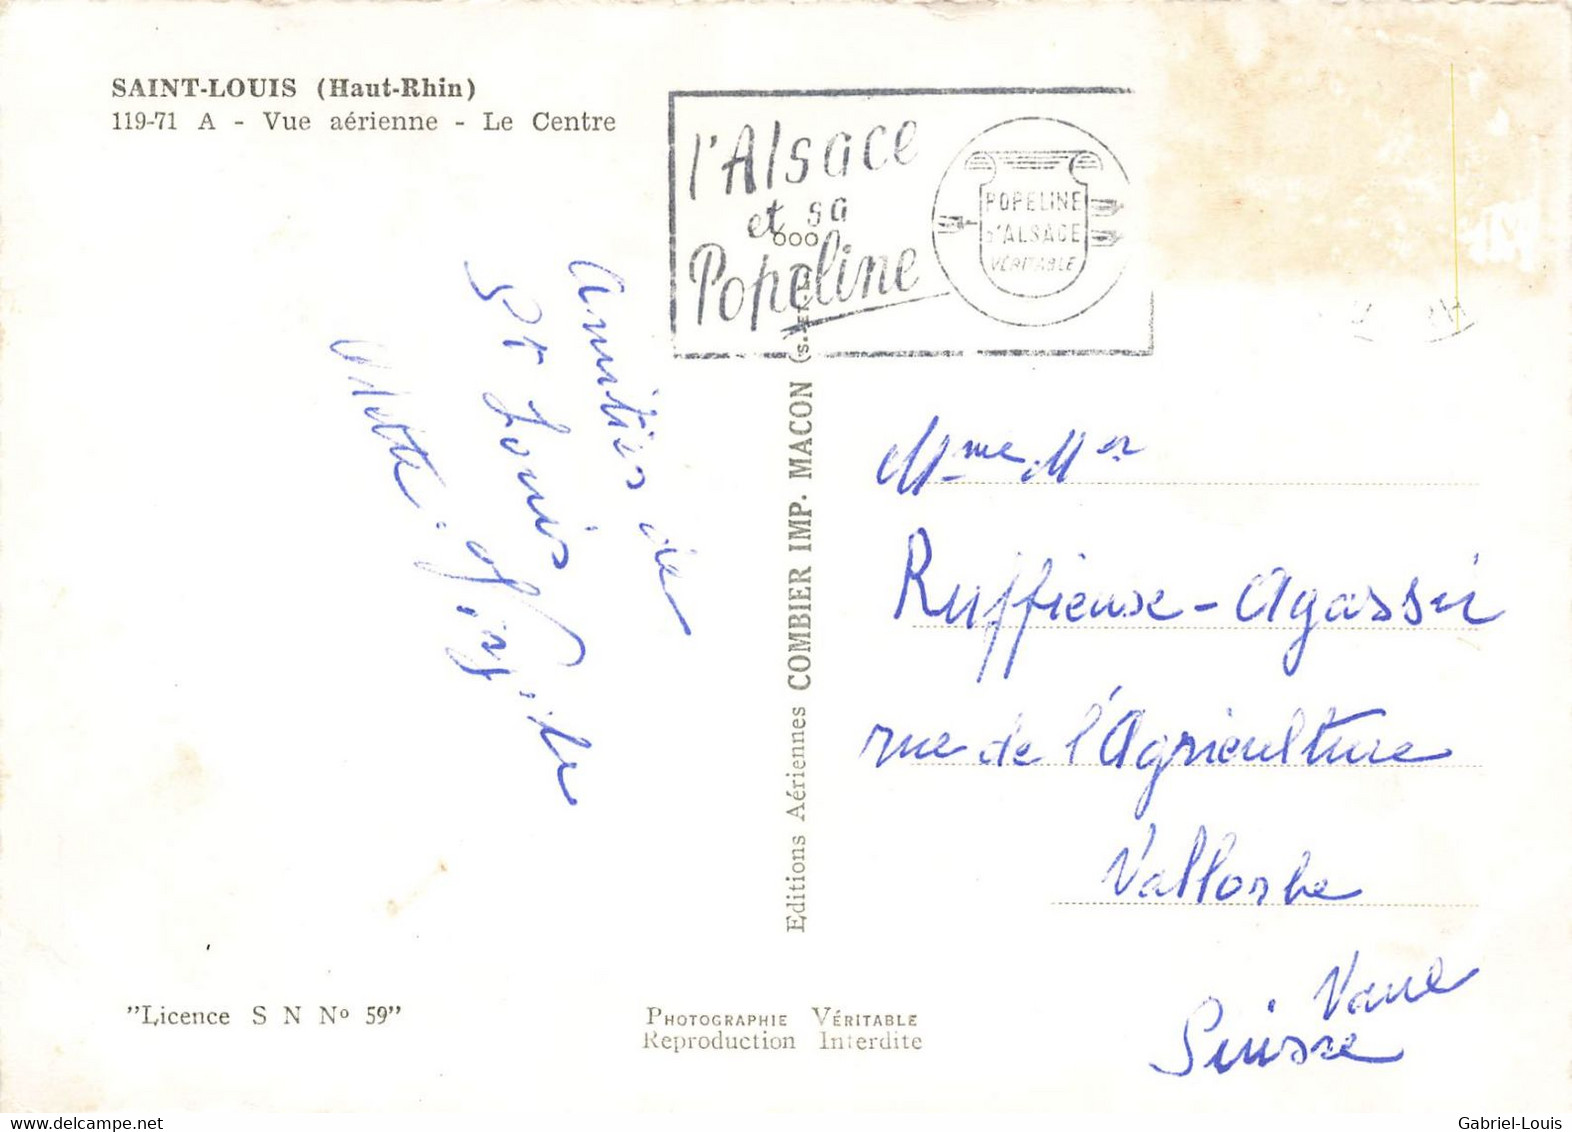 SAINT-LOUIS (Haut-Rhin)
119-71 A - Vue aérienne - Le Centre
l'Alsace
et sa
Popeline
POPELINE
D'ALSACE
VÉRITABLE
Amitiés de
St Louis
Editions Aériennes COMBIER IMP. MACON
Mme Mr
Ruffieuse - Agassii
rue de l'Agriculture
Vallorbe
Vaud
Suisse
"Licence S N No 59"
PHOTOGRAPHIE VÉRITABLE
Reproduction Interdite
Gabriel-Louis